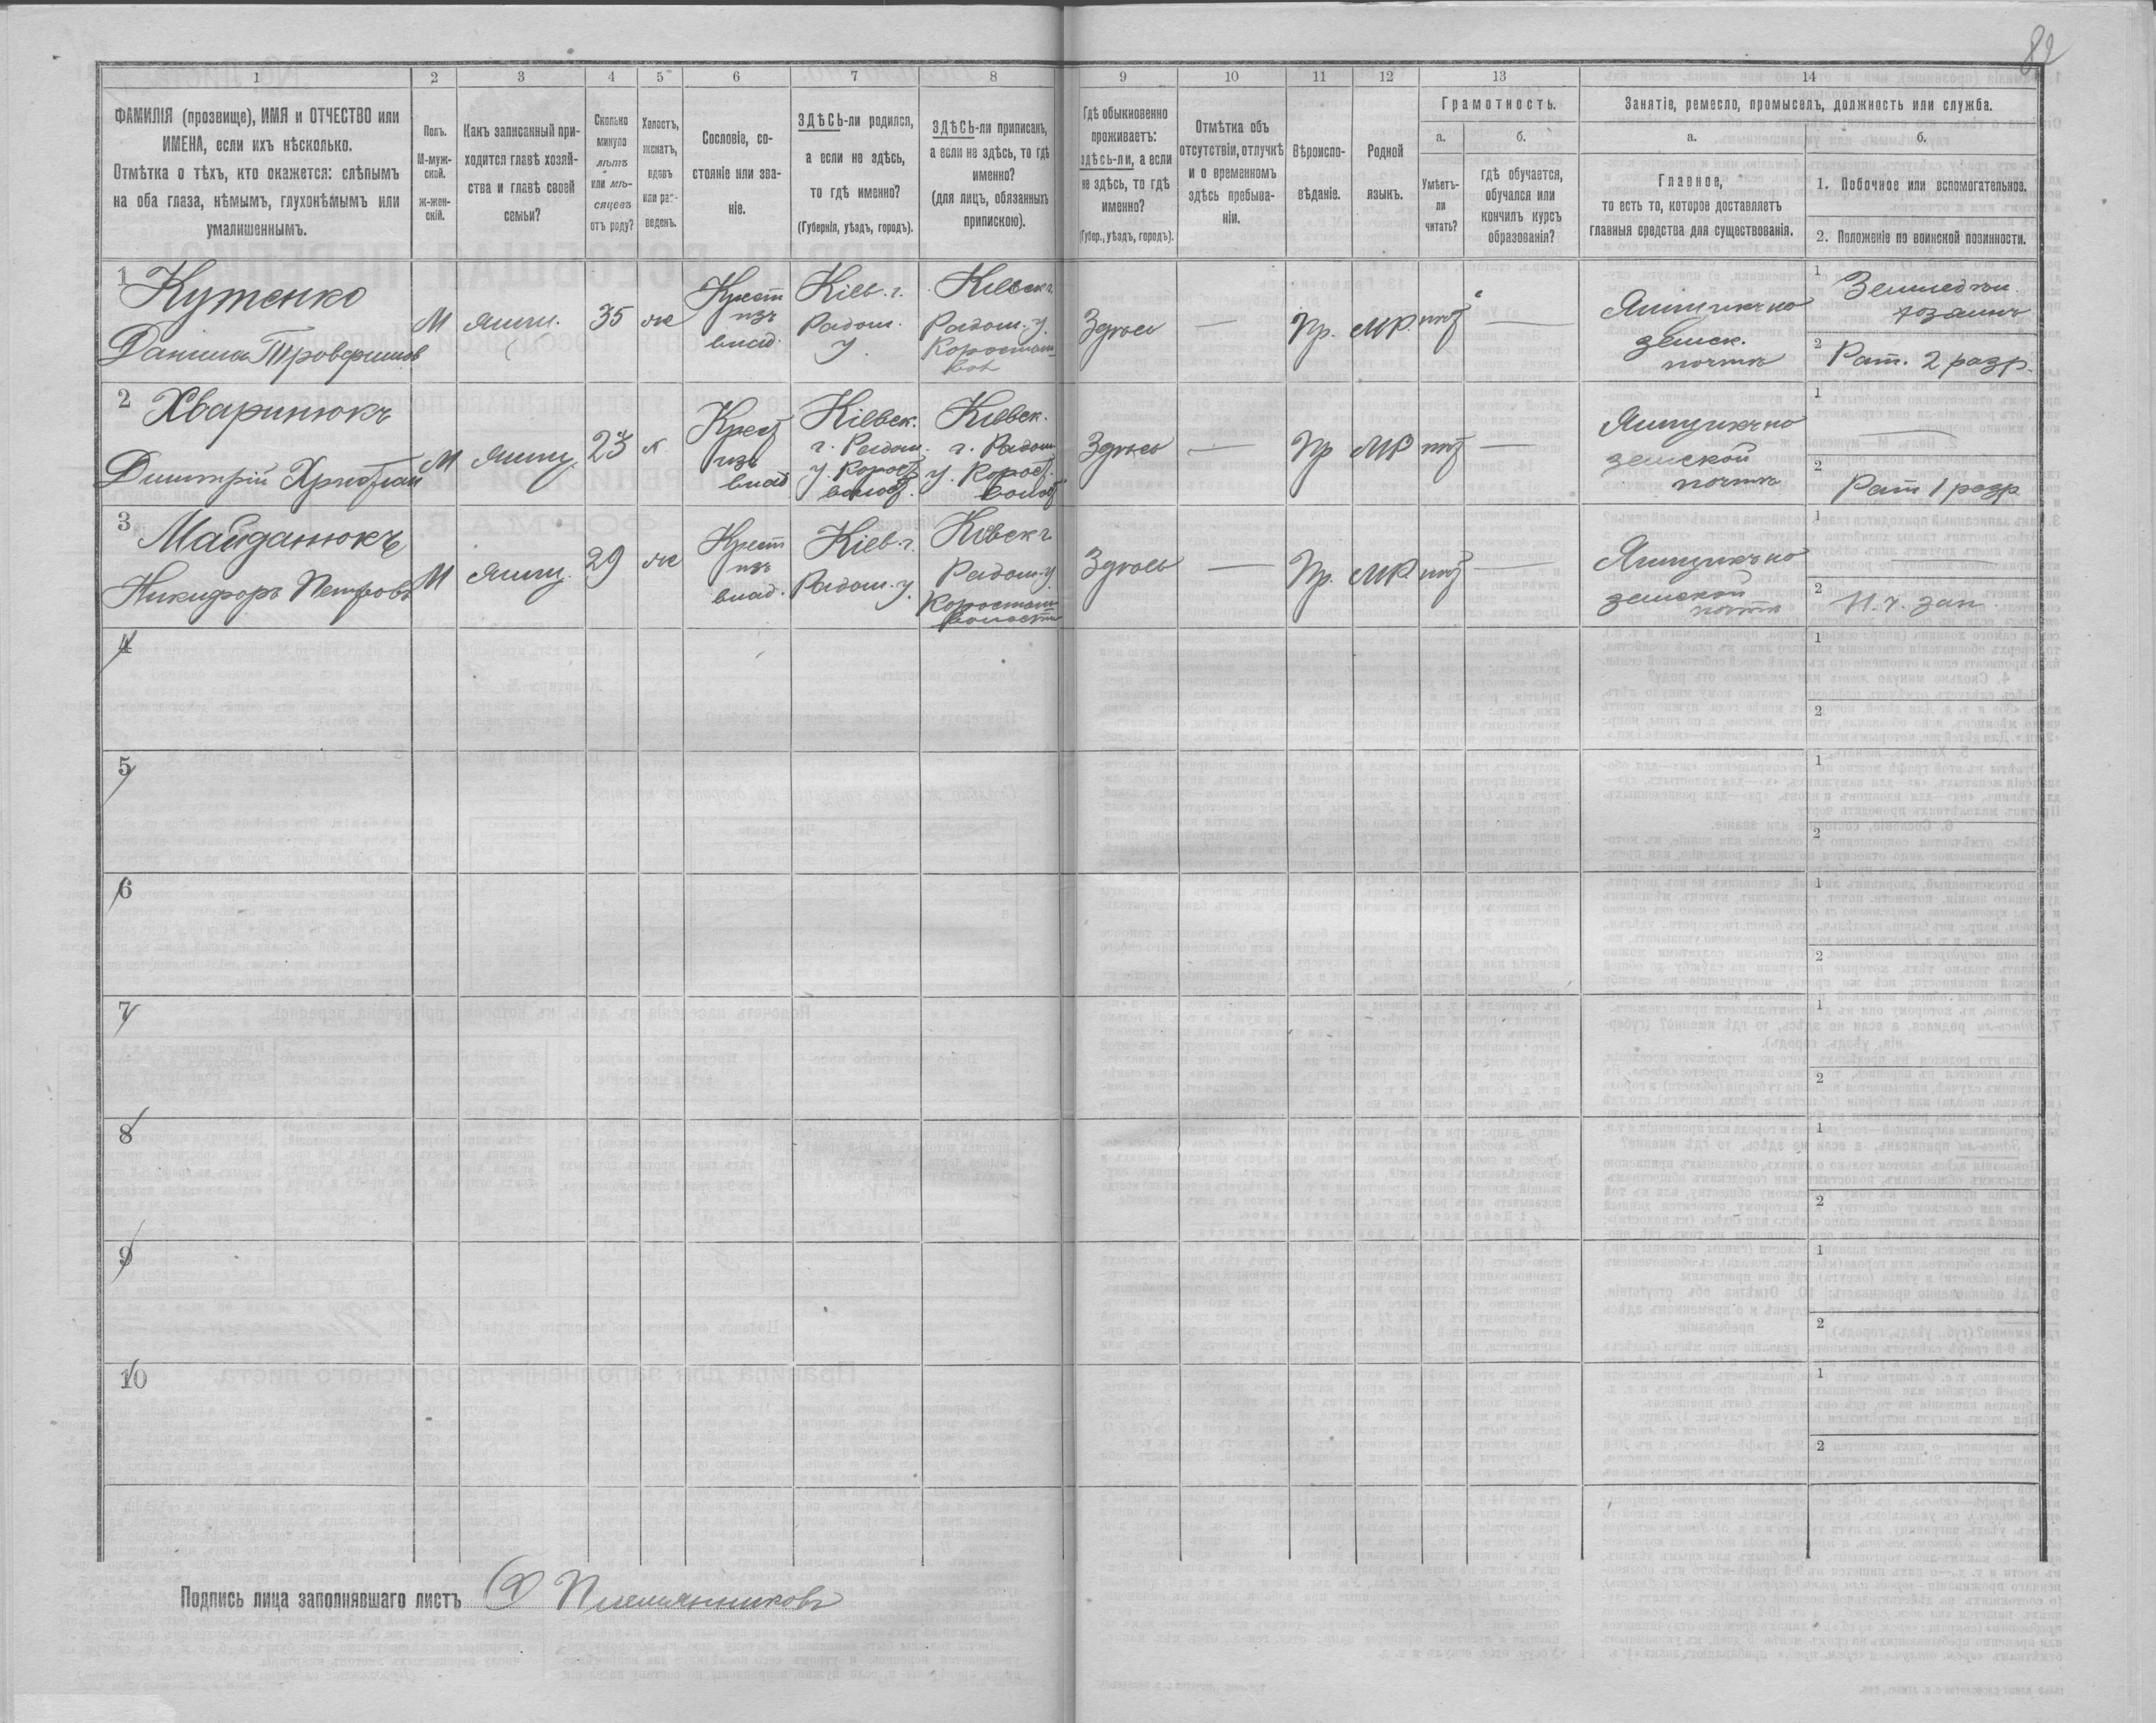 82
1 2 3 4 5 6 7 8 9 10 11 12 13 14
ФАМИЛІЯ (прозвище), ИМЯ и ОТЧЕСТВО или
ИМЕНА, если ихъ нѣсколько.
Отмѣтка о тѣхъ, кто окажется: слѣпымъ
на оба глаза, нѣмымъ, глухонѣмымъ или
умалишеннымъ.
Полъ.
М-муж-
ской.
ж-жен-
скій.
Какъ записанный при-
ходится главѣ хозяй-
ства и главѣ своей
семьи?
Сколько
минуло
лѣтъ
или мѣ-
сяцевъ
отъ роду?
Холостъ,
женатъ,
вдовъ
или раз-
веденъ.
Сословіе, со-
стояніе или зва-
ніе.
ЗДѢСЬ-ли родился,
а если не здѣсь,
то гдѣ именно?
(Губернія, уѣздъ, городъ).
ЗДѢСЬ-ли приписанъ,
а если не здѣсь, то гдѣ
именно?
(для лицъ, обязанныхъ
припискою).
Гдѣ обыкновенно
проживаетъ:
здѣсь-ли, а если
не здѣсь, то гдѣ
именно?
(Губер., уѣздъ, городъ).
Отмѣтка объ
отсутствіи, отлучкѣ
и о временномъ
здѣсь пребыва-
ніи.
Вѣроиспо-
вѣданіе.
Родной
языкъ.
Грамотность.
а.
Умѣетъ-
ли
читать?
б.
гдѣ обучается,
обучался или
кончилъ курсъ
образованія?
Занятіе, ремесло, промыселъ, должность или служба.
а.
Главное,
то есть то, которое доставляетъ
главныя средства для существованія.
б.
1. Побочное или вспомогательное.
2. Положеніе по воинской повинности.
1
Кутенко
Данила
М
35
ж
Крест
изъ
влад.
Кіев. г.
Радом.
у.
Кіевск г.
Радом. у.
Здѣсь
—
Пр.
МР.
нѣт
—
Ямщикъ по
земск.
почтѣ
1
Земледѣл.
хозяинъ
2
Рат. 2 разр.
2
Хваринюкъ
Димитрій
М
ямщ.
23
х
Крест
изъ
влад
Кіевск.
г. Радом.
у. Корост.
волост.
Кіевск.
г. Радом.
у. Корост.
волост
Здѣсь
—
Пр
МР
нѣт
—
Ямщикъ по
земской
почтѣ
1
—
2
Рат 1 разр
3
Майданюкъ
Никифоръ Петровъ
М
ямщ.
29
ж
Крест
изъ
влад.
Кіев. г.
Радом. у.
Кіевск г
Радом. у.
Коростош
волости
Здѣсь
—
Пр.
МР.
нѣт
—
Ямщикъ по
земской
почтѣ
1
2
Н. ч. зап.
4
1
2
5
1
2
6
1
2
7
1
2
8
1
2
9
1
2
10
1
2
Подпись лица заполнявшаго листъ Племянниковъ